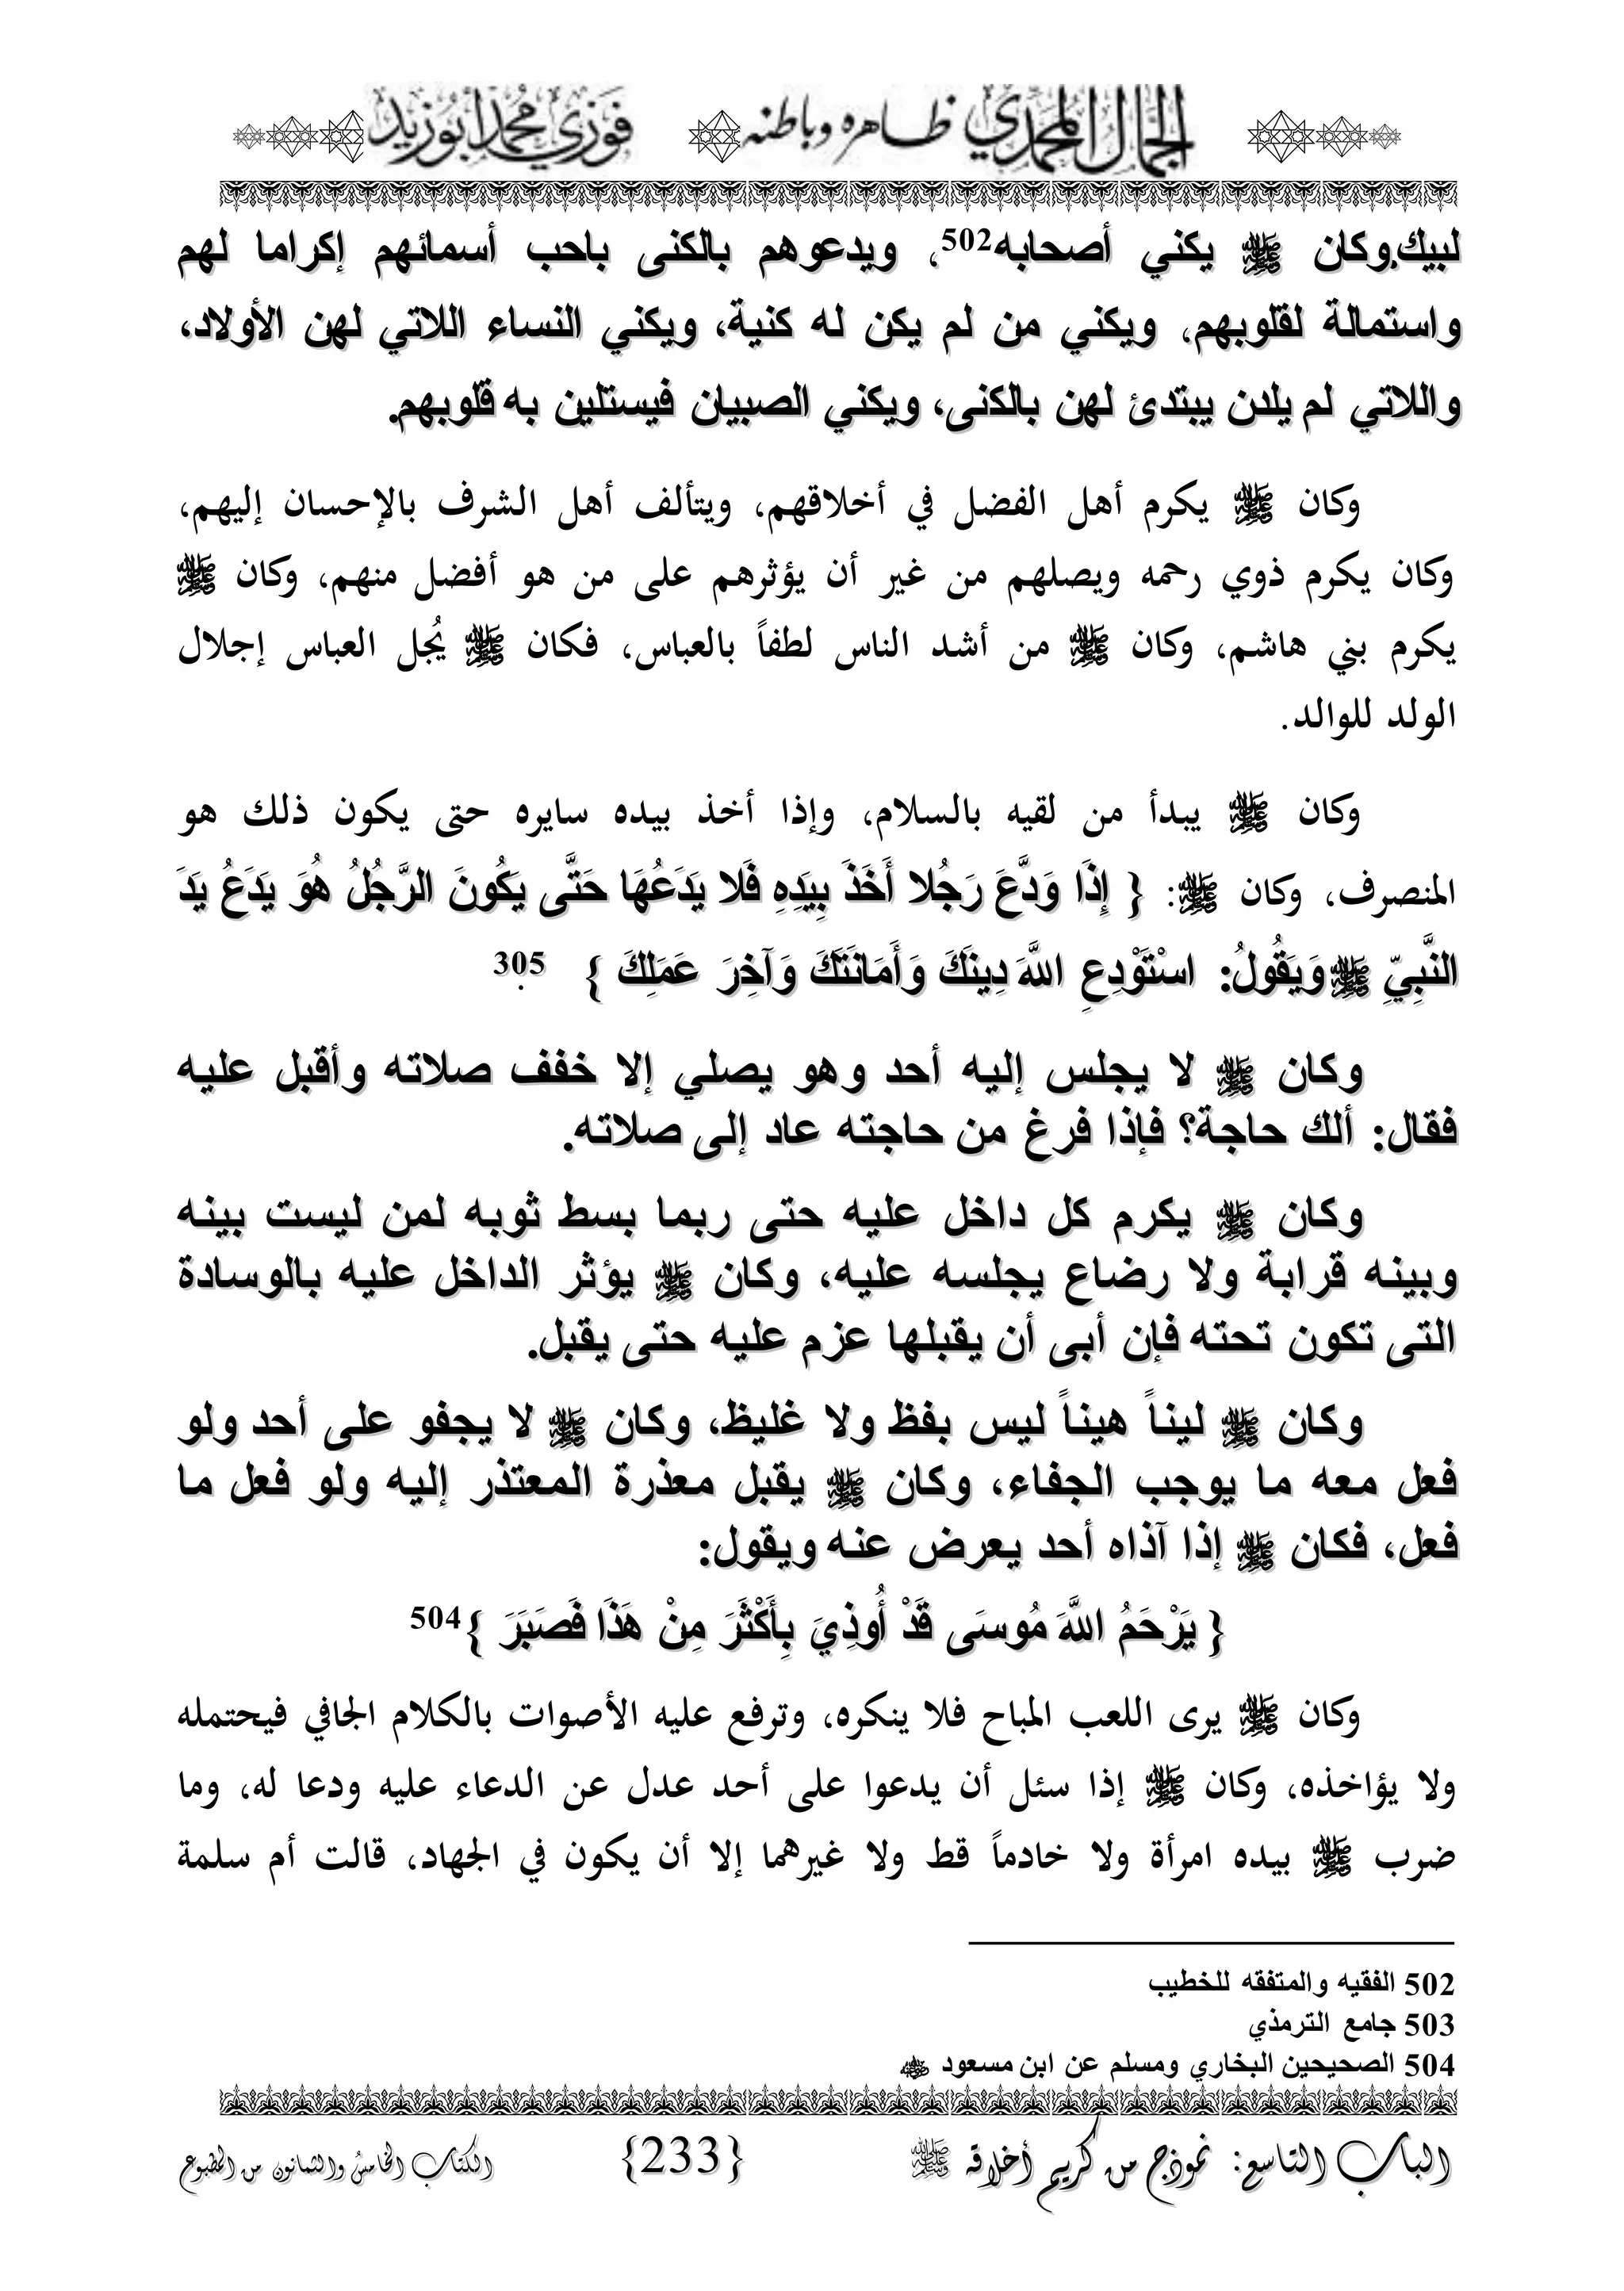 الجمال المحمدي ظاهره وباطنه فوزي محمد أبوزيد
لبيك.وكان ﷺ يكني أصحابه502، ويدعوهم بالكنى باحب أسمائهم إكراما لهم
واستمالة لقلوبهم، ويكني من لم يكن له كنية، ويكني النساء اللاتي لهن الأولاد،
واللاتي لم يلدن يبتدئ لهن بالكنى، ويكني الصبيان فيستلين به قلوبهم.
وكان ﷺ يكرم أهل الفضل في أخلاقهم، ويتألف أهل الشرف بالإحسان إليهم،
وكان يكرم ذوي رحمه ويصلهم من غير أن يؤثرهم على من هو أفضل منهم، وكان ﷺ
يكرم بني هاشم، وكان ﷺ من أشد الناس لطفاً بالعباس، فكان ﷺ يُجل العباس إجلال
الولد للوالد.
وكان ﷺ يبدأ من لقيه بالسلام، وإذا أخذ بيده سايره حتى يكون ذلك هو
المنصرف، وكان ﷺ: { إِذَا وَدَّعَ رَجُلا أَخَذَ بِيَدِهِ فَلا يَدَعُهَا حَتَّى يَكُونَ الرَّجُلُ هُوَ يَدَعُ يَدَ
النَّبِيِّ ﷺ وَيَقُولُ: اسْتَوْدِعِ اللَّهَ دِينَكَ وَأَمَانَتَكَ وَآخِرَ عَمَلِكَ } 305.
وكان ﷺ لا يجلس إليه أحد وهو يصلي إلا خفف صلاته وأقبل عليه
فقال: ألك حاجة؟ فإذا فرغ من حاجته عاد إلى صلاته.
وكان ﷺ يكرم كل داخل عليه حتى ربما بسط ثوبه لمن ليست بينه
وبينه قرابة ولا رضاع يجلسه عليه، وكان ﷺ يؤثر الداخل عليه بالوسادة
التى تكون تحته فإن أبى أن يقبلها عزم عليه حتى يقبل.
وكان ﷺ ليناً هيناً ليس بفظ ولا غليظ، وكان ﷺ لا يجفو على أحد ولو
فعل معه ما يوجب الجفاء، وكان ﷺ يقبل معذرة المعتذر إليه ولو فعل ما
فعل، فكان ﷺ إذا آذاه أحد يعرض عنه ويقول:
{ يَرْحَمُ اللَّهَ مُوسَى قَدْ أُوذِيَ بِأَكْثَرَ مِنْ هَذَا فَصَبَرَ }504
وكان ﷺ يرى اللعب المباح فلا ينكره، وترفع عليه الأصوات بالكلام الجافي فيحتمله
ولا يؤاخذه، وكان ﷺ إذا سئل أن يدعوا على أحد عدل عن الدعاء عليه ودعا له، وما
ضرب ﷺ بيده امرأة ولا خادماً قط ولا غيرهما إلا أن يكون في الجهاد، قالت أم سلمة
502 الفقيه والمتفقه للخطيب
503 جامع الترمذي
504 الصحيحين البخاري ومسلم عن ابن مسعود
الباب التاسع: نموذج من كريم أخلاقه ﷺ {233} الكتاب الخامس والثمانون من المطبوع